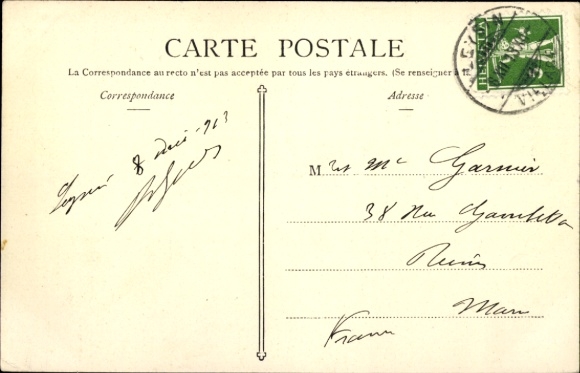 CARTE POSTALE
La Correspondance au recto n'est pas acceptée par tous les pays étrangers. (Se renseigner à
Correspondance
Adresse
HELVETIA
8 1913
M et Me Garnier
38 Rue Gambetta
Reims
Marne
France